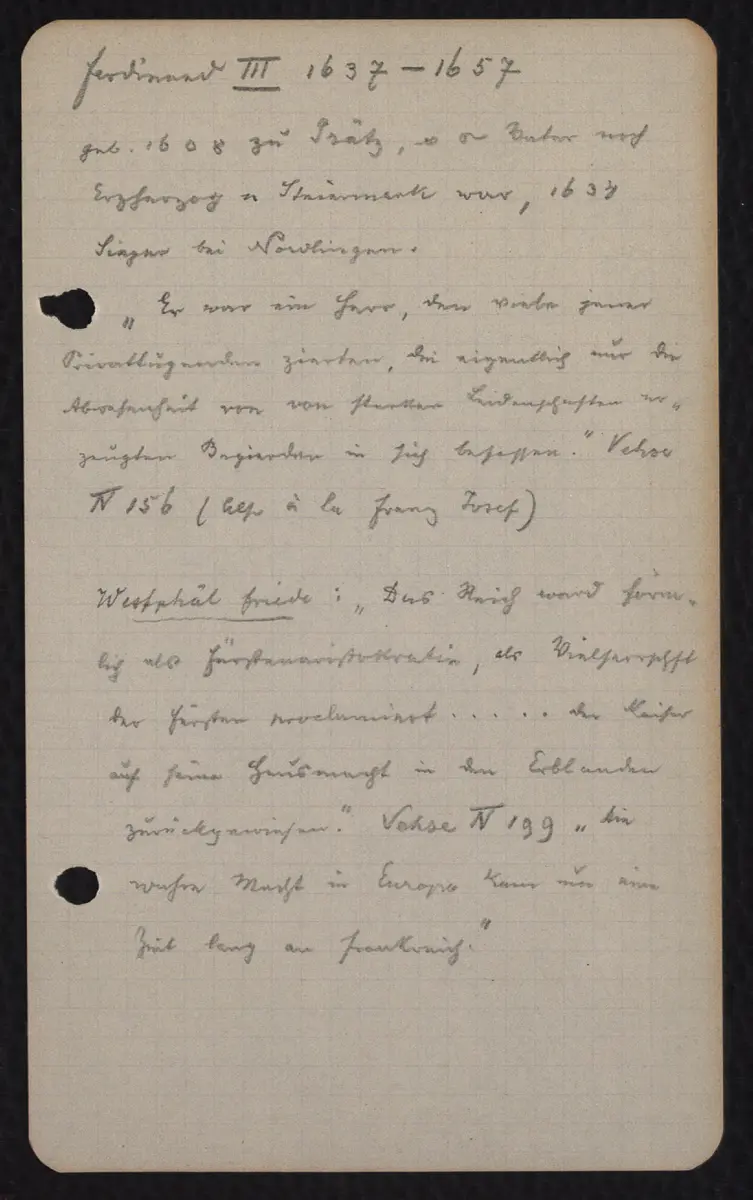 Ferdinand III 1637–1657
geb. 1608 zu Grätz, Vater noch
Erzherzog v Steiermark war, 1634
Sieger bei Nördlingen.
„Er war ein Herr, den viele jener
Privattugenden zierten, die eigentlich nur die
Abwesenheit von von starken Leidenschaften er-
zeugten Begierden in sich befassen." Vehse
IV 156 (à la Franz Josef)
Westphäl Friede: „Das Reich ward förm-
lich als Fürstenaristokratie, als Vielherrschft
der Fürsten proclamiert ..... der Kaiser
auf seine Hausmacht in den Erblanden
zurückgewiesen." Vehse IV 199 „Die
wahre Macht in Europa kam nun eine
Zeit lang an Frankreich."